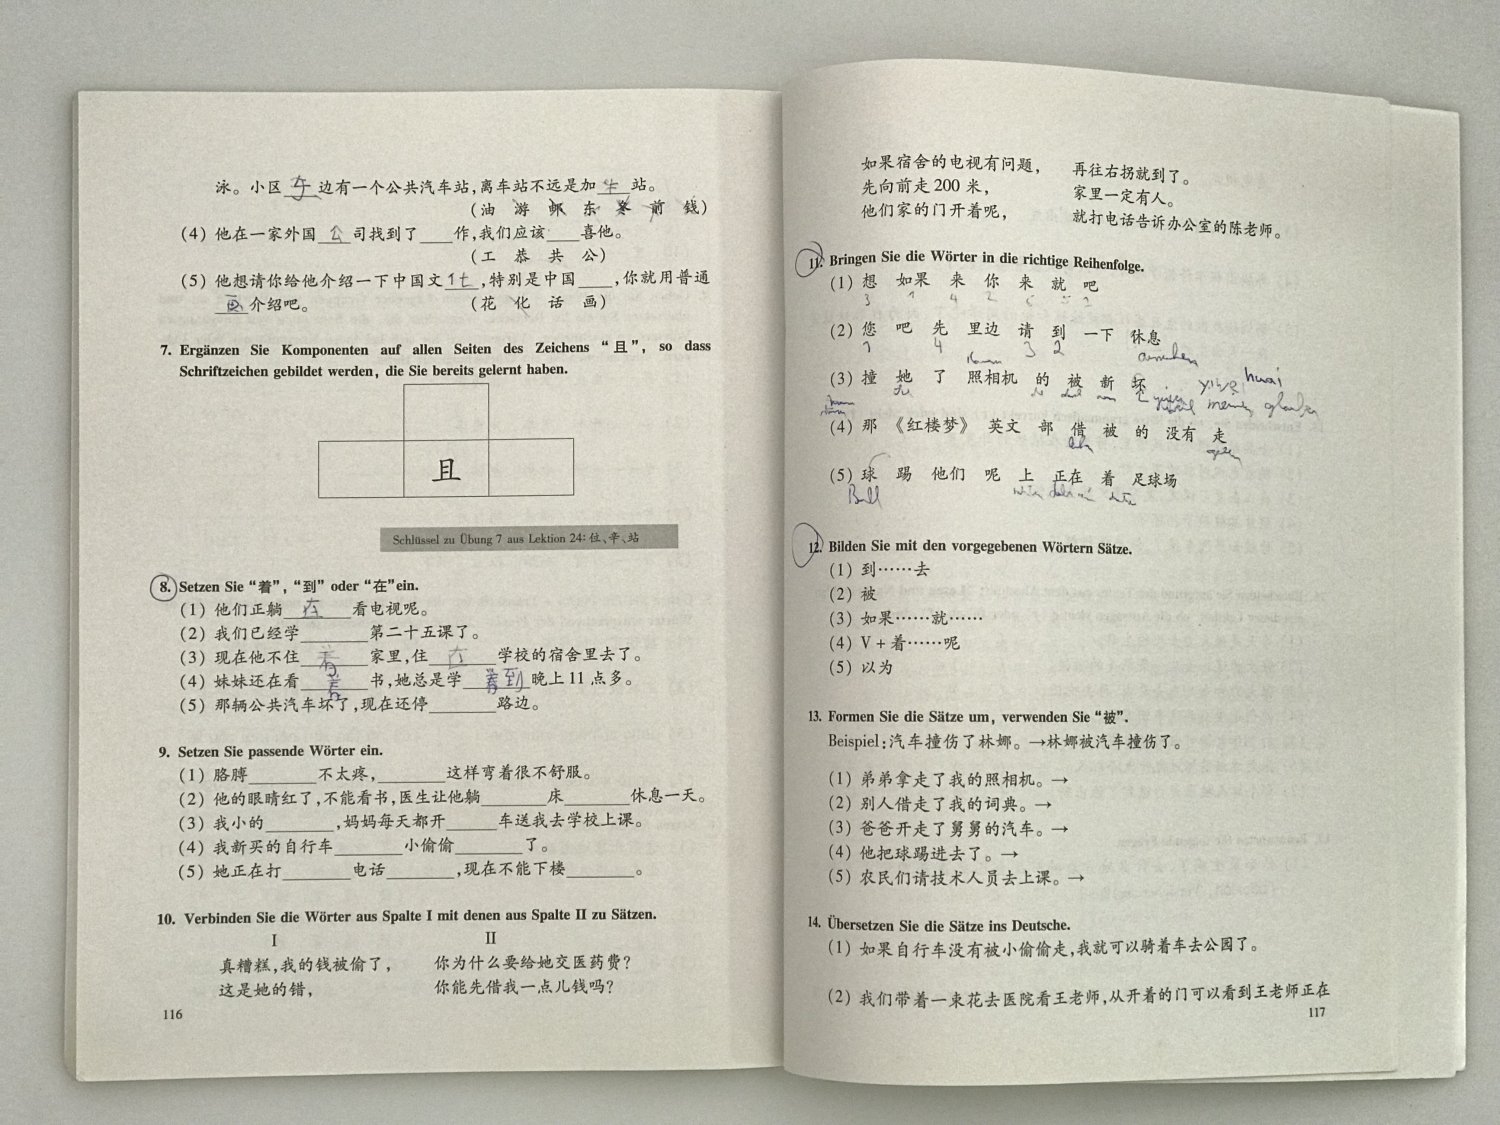 泳。小区 边有一个公共汽车站,离车站不远是加 牛 站。
(油 游 邮 东 冬 前 钱)
(4) 他在一家外国 公 司找到了____作,我们应该____喜他。
(工 恭 共 公)
(5) 他想请你给他介绍一下中国文 化 ,特别是中国____,你就用普通
画 介绍吧。 (花 化 话 画)
7. Ergänzen Sie Komponenten auf allen Seiten des Zeichens “且”, so dass
Schriftzeichen gebildet werden, die Sie bereits gelernt haben.
且
Schlüssel zu Übung 7 aus Lektion 24: 位、辛、站
8. Setzen Sie “着”, “到” oder “在” ein.
(1) 他们正躺 在 看电视呢。
(2) 我们已经学________第二十五课了。
(3) 现在他不住 着 家里,住 在 学校的宿舍里去了。
(4) 妹妹还在看 着 书,她总是学 着到 晚上 11 点多。
(5) 那辆公共汽车坏了,现在还停________路边。
9. Setzen Sie passende Wörter ein.
(1) 胳膊________不太疼,________这样弯着很不舒服。
(2) 他的眼睛红了,不能看书,医生让他躺________床________休息一天。
(3) 我小的________,妈妈每天都开______车送我去学校上课。
(4) 我新买的自行车________小偷偷________了。
(5) 她正在打________电话________,现在不能下楼________。
10. Verbinden Sie die Wörter aus Spalte I mit denen aus Spalte II zu Sätzen.
I II
真糟糕,我的钱被偷了, 你为什么要给她交医药费?
这是她的错, 你能先借我一点儿钱吗?
116
如果宿舍的电视有问题, 再往右拐就到了。
先向前走 200 米, 家里一定有人。
他们家的门开着呢, 就打电话告诉办公室的陈老师。
11. Bringen Sie die Wörter in die richtige Reihenfolge.
(1) 想 如果 来 你 来 就 吧
3 1 4 2
(2) 您 吧 先 里边 请 到 一下 休息
1 4 3 2
(3) 撞 她 了 照相机 的 被 新 坏
huai
(4) 那 《红楼梦》 英文 部 借 被 的 没有 走
(5) 球 踢 他们 呢 上 正在 着 足球场
Ball
12. Bilden Sie mit den vorgegebenen Wörtern Sätze.
(1) 到……去
(2) 被
(3) 如果……就……
(4) V + 着……呢
(5) 以为
13. Formen Sie die Sätze um, verwenden Sie “被”.
Beispiel:汽车撞伤了林娜。→林娜被汽车撞伤了。
(1) 弟弟拿走了我的照相机。→
(2) 别人借走了我的词典。→
(3) 爸爸开走了舅舅的汽车。→
(4) 他把球踢进去了。→
(5) 农民们请技术人员去上课。→
14. Übersetzen Sie die Sätze ins Deutsche.
(1) 如果自行车没有被小偷偷走,我就可以骑着车去公园了。
(2) 我们带着一束花去医院看王老师,从开着的门可以看到王老师正在
117